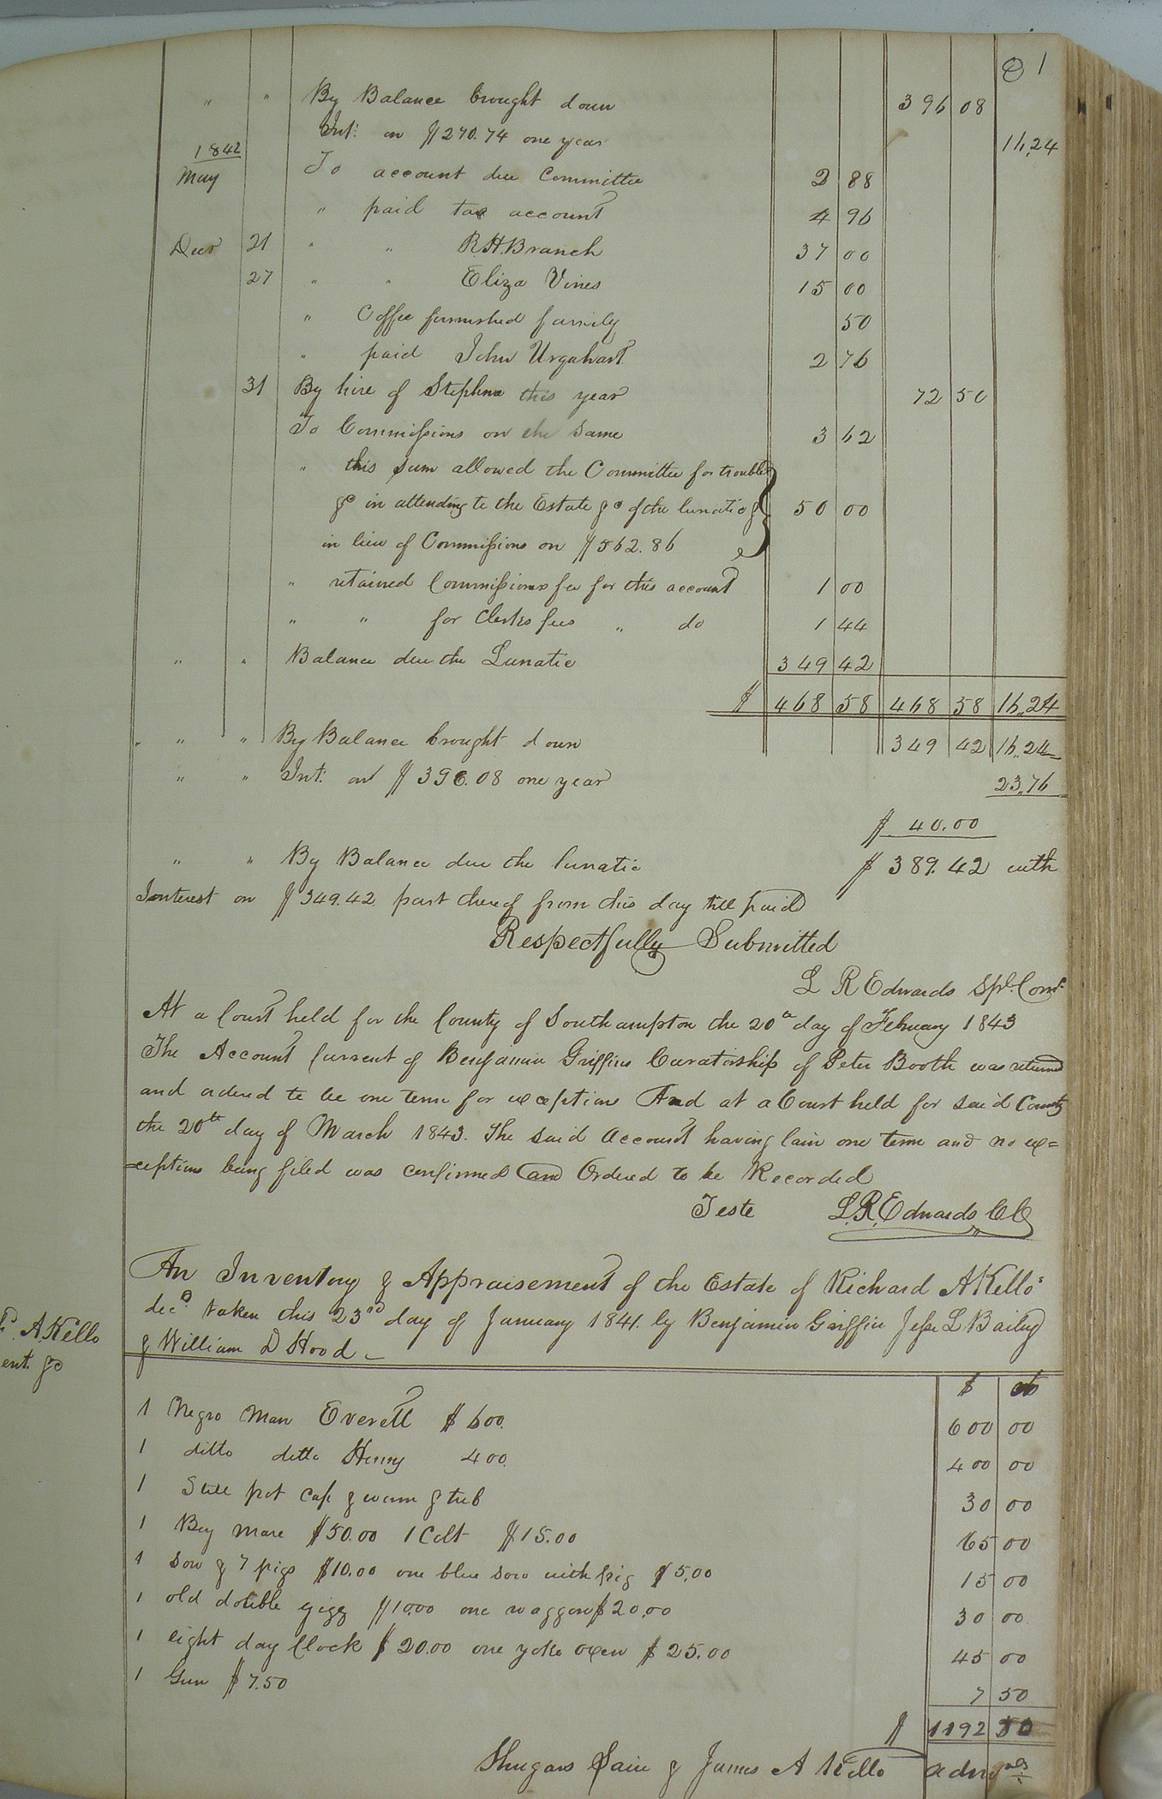 1
" " By Balance brought down 396 08
Int: on $270.74 one year 16,24
1842
May To account due Committee 2 88
" paid tax account 4 96
Decr 21 " " R.H. Branch 37 00
27 " " Eliza Vines 15 00
" Coffee furnished family 50
" paid John Urquhart 2 76
31 By hire of Stephen this year 72 50
To Commissions on the Same 3 62
" this sum allowed the Committee for trouble
&c in attending to the Estate &c of the lunatic & 50 00
in lieu of Commissions on $562.86
" retained Commissioners fee for this account 1 00
" " for Clerks fees " do 1 44
" " Balance due the Lunatic 349 42
$ 468 58 468 58 16.24
" " " By Balance brought down 349 42 16.24
" " Int: on $396.08 one year 23.76
$ 40.00
" " By Balance due the lunatic $ 389.42 with
Interest on $349.42 part thereof from this day till paid
Respectfully Submitted
L R Edwards Spl. Comr.
At a Court held for the County of Southampton the 20th day of February 1843
The Account Current of Benjamin Griffins Curatorship of Peter Booth was returned
and ordered to lie one term for exception And at a Court held for said County
the 20th day of March 1843. The said Account having lain one term and no ex=
=ceptions being filed was confirmed and Ordered to be Recorded
Teste L.R. Edwards CC
An Inventory & Appraisement of the Estate of Richard A Kello
decd. taken this 23rd day of January 1841. by Benjamin Griffin Jesse L Bailey
& William D Hood
A. Kello
ent. &c
$ cts
1 Negro Man Everett $600. 600 00
1 ditto ditto Henry 400. 400 00
1 Still pot cap & worm & tub 30 00
1 Bay mare $50.00 1 Colt $15.00 65 00
1 Sow & 7 pigs $10.00 one blue sow with pig $5.00 15 00
1 old double gigg $10.00 one waggon $20.00 30 00
1 eight day Clock $20.00 one yoke oxen $25.00 45 00
1 Gun $7.50 7 50
$ 1192 50
James A Kello admors